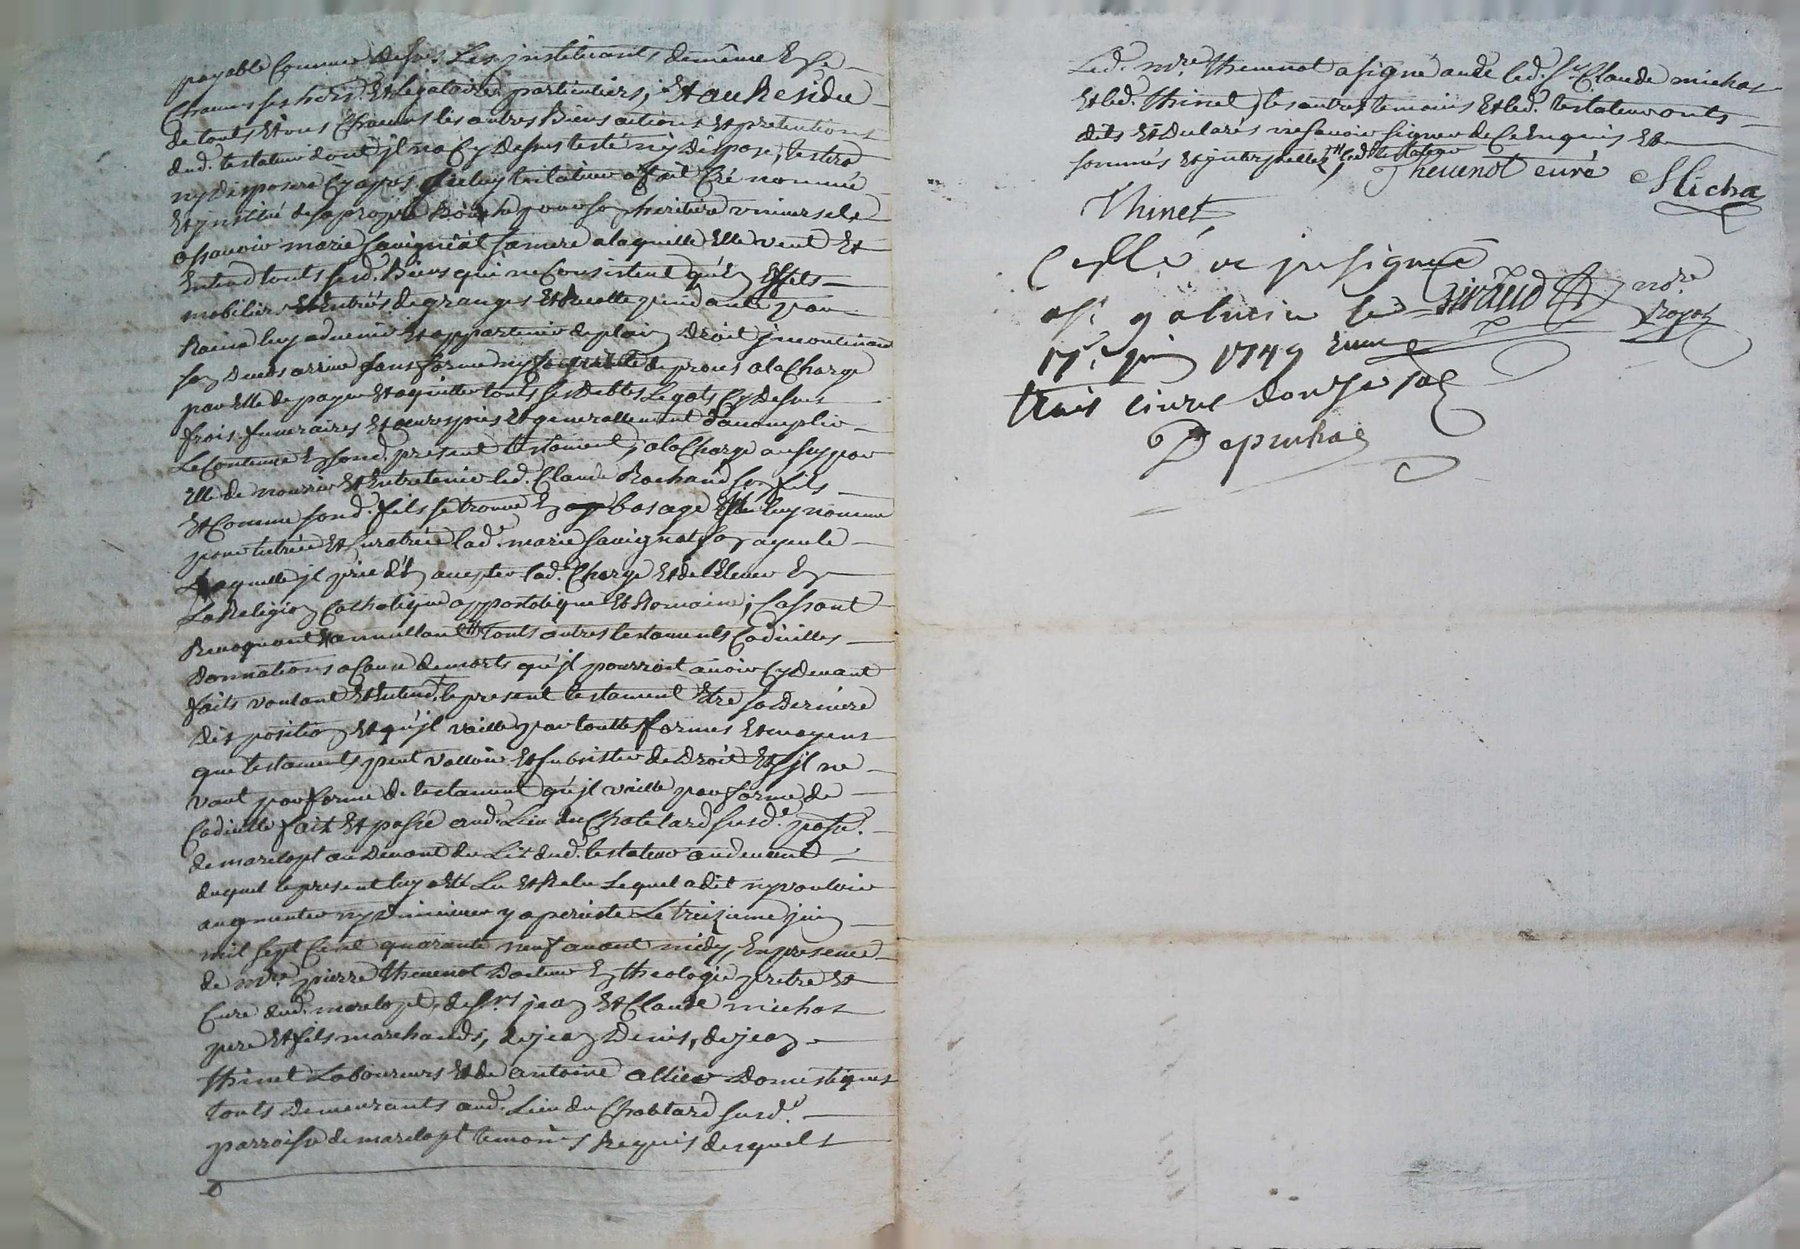 payable comme dessus les instituants de même en se
chacun ses hoirs Et légataires particuliers; Et au Residu
de touts Et uns chacuns les autres Biens actions Et pretentions
dud. testateur dont jl na cy Dessus testé ny dispose, testera
ny disposera cy apres jceluy testateur a fait Cré nommé
Et jnstitué de sa propre Bouche pour son heritiere universele
assavoir marie savignat sa mere a laquelle Elle veut Et
Entend touts sesd. Biens qui ne Consistent qu'En Effets
mobiliers Et Entrées de granges Et Recolte pendante par
Racine luy advenir Et appartenir de plain Droit jncontinant
son Deces arrivé sans forme ny figure de proces a la Charge
par Elle de payer Et aquitter touts ses Debtes Legats Cy Dessus
frois funeraires Et oeuvres pies Et generallement d'accomplir
Le Contenu En sond. present testament; a la Charge aussy par
Elle de nourrir Et Entretenir led. Claude Rochand son fils
Et Comme sond. fils se trouve En bas age Elle luy nomme
pour tutrice Et curatrice lad. marie savignat son ayeule
Laquelle jl prie d'En accepter lad. Charge Et de l'Elever En
La Religion Catholique appostolique Et Romaine; Cassant
Revoquant Et annullant touts autres testaments Codicilles
Donnations a Cause de morts qu'jl pourroit avoir Cy Devant
faits voulant Et Entend. le present testament Etre sa derniere
disposition Et qu'jl vaille par touttes formes Et moyens
que testaments peut valloir Et subsister de Droit Et sjl ne
vaut par forme de testament qu'jl vaille par forme de
Codicille fait Et passé aud. Lieu du Chatelard susd. parr.
de marclopt au Devant du Lit dud. testateur au devant
duquel le present luy a Eté Lu Et Relu Lequel a dit ny vouloir
augmenter ny diminuer y a persisté Le treizieme juin
mil sept Cent quarante neuf avant midy, En presence
de mre. pierre thevenot Docteur En theologie pretre Et
Curé dud. marclopt, de srs jean Et Claude michas
pere Et fils marchands, de jean Denis, de jean
thinet Laboureurs Et de antoine allier Domestiques
touts Demeurants aud. Lieu du Chatelard susd.
parroisse de marclopt temoins Requis desquels
Led. mre. thevenot a signé avec led. sr. Claude michas
Et led. thinet, les autres temoins Et led. testateur onts
dits Et Declarés ne savoir signer de Ce Enquis Et
sommés Et jnterpellés Led. testateur
Thevenot curé Micha
Thinet
Cellé ve je signée
Giraud nore Royal
a st galmier le
17e juin 1749 Reçu
trois livres douze sols
Depinhac